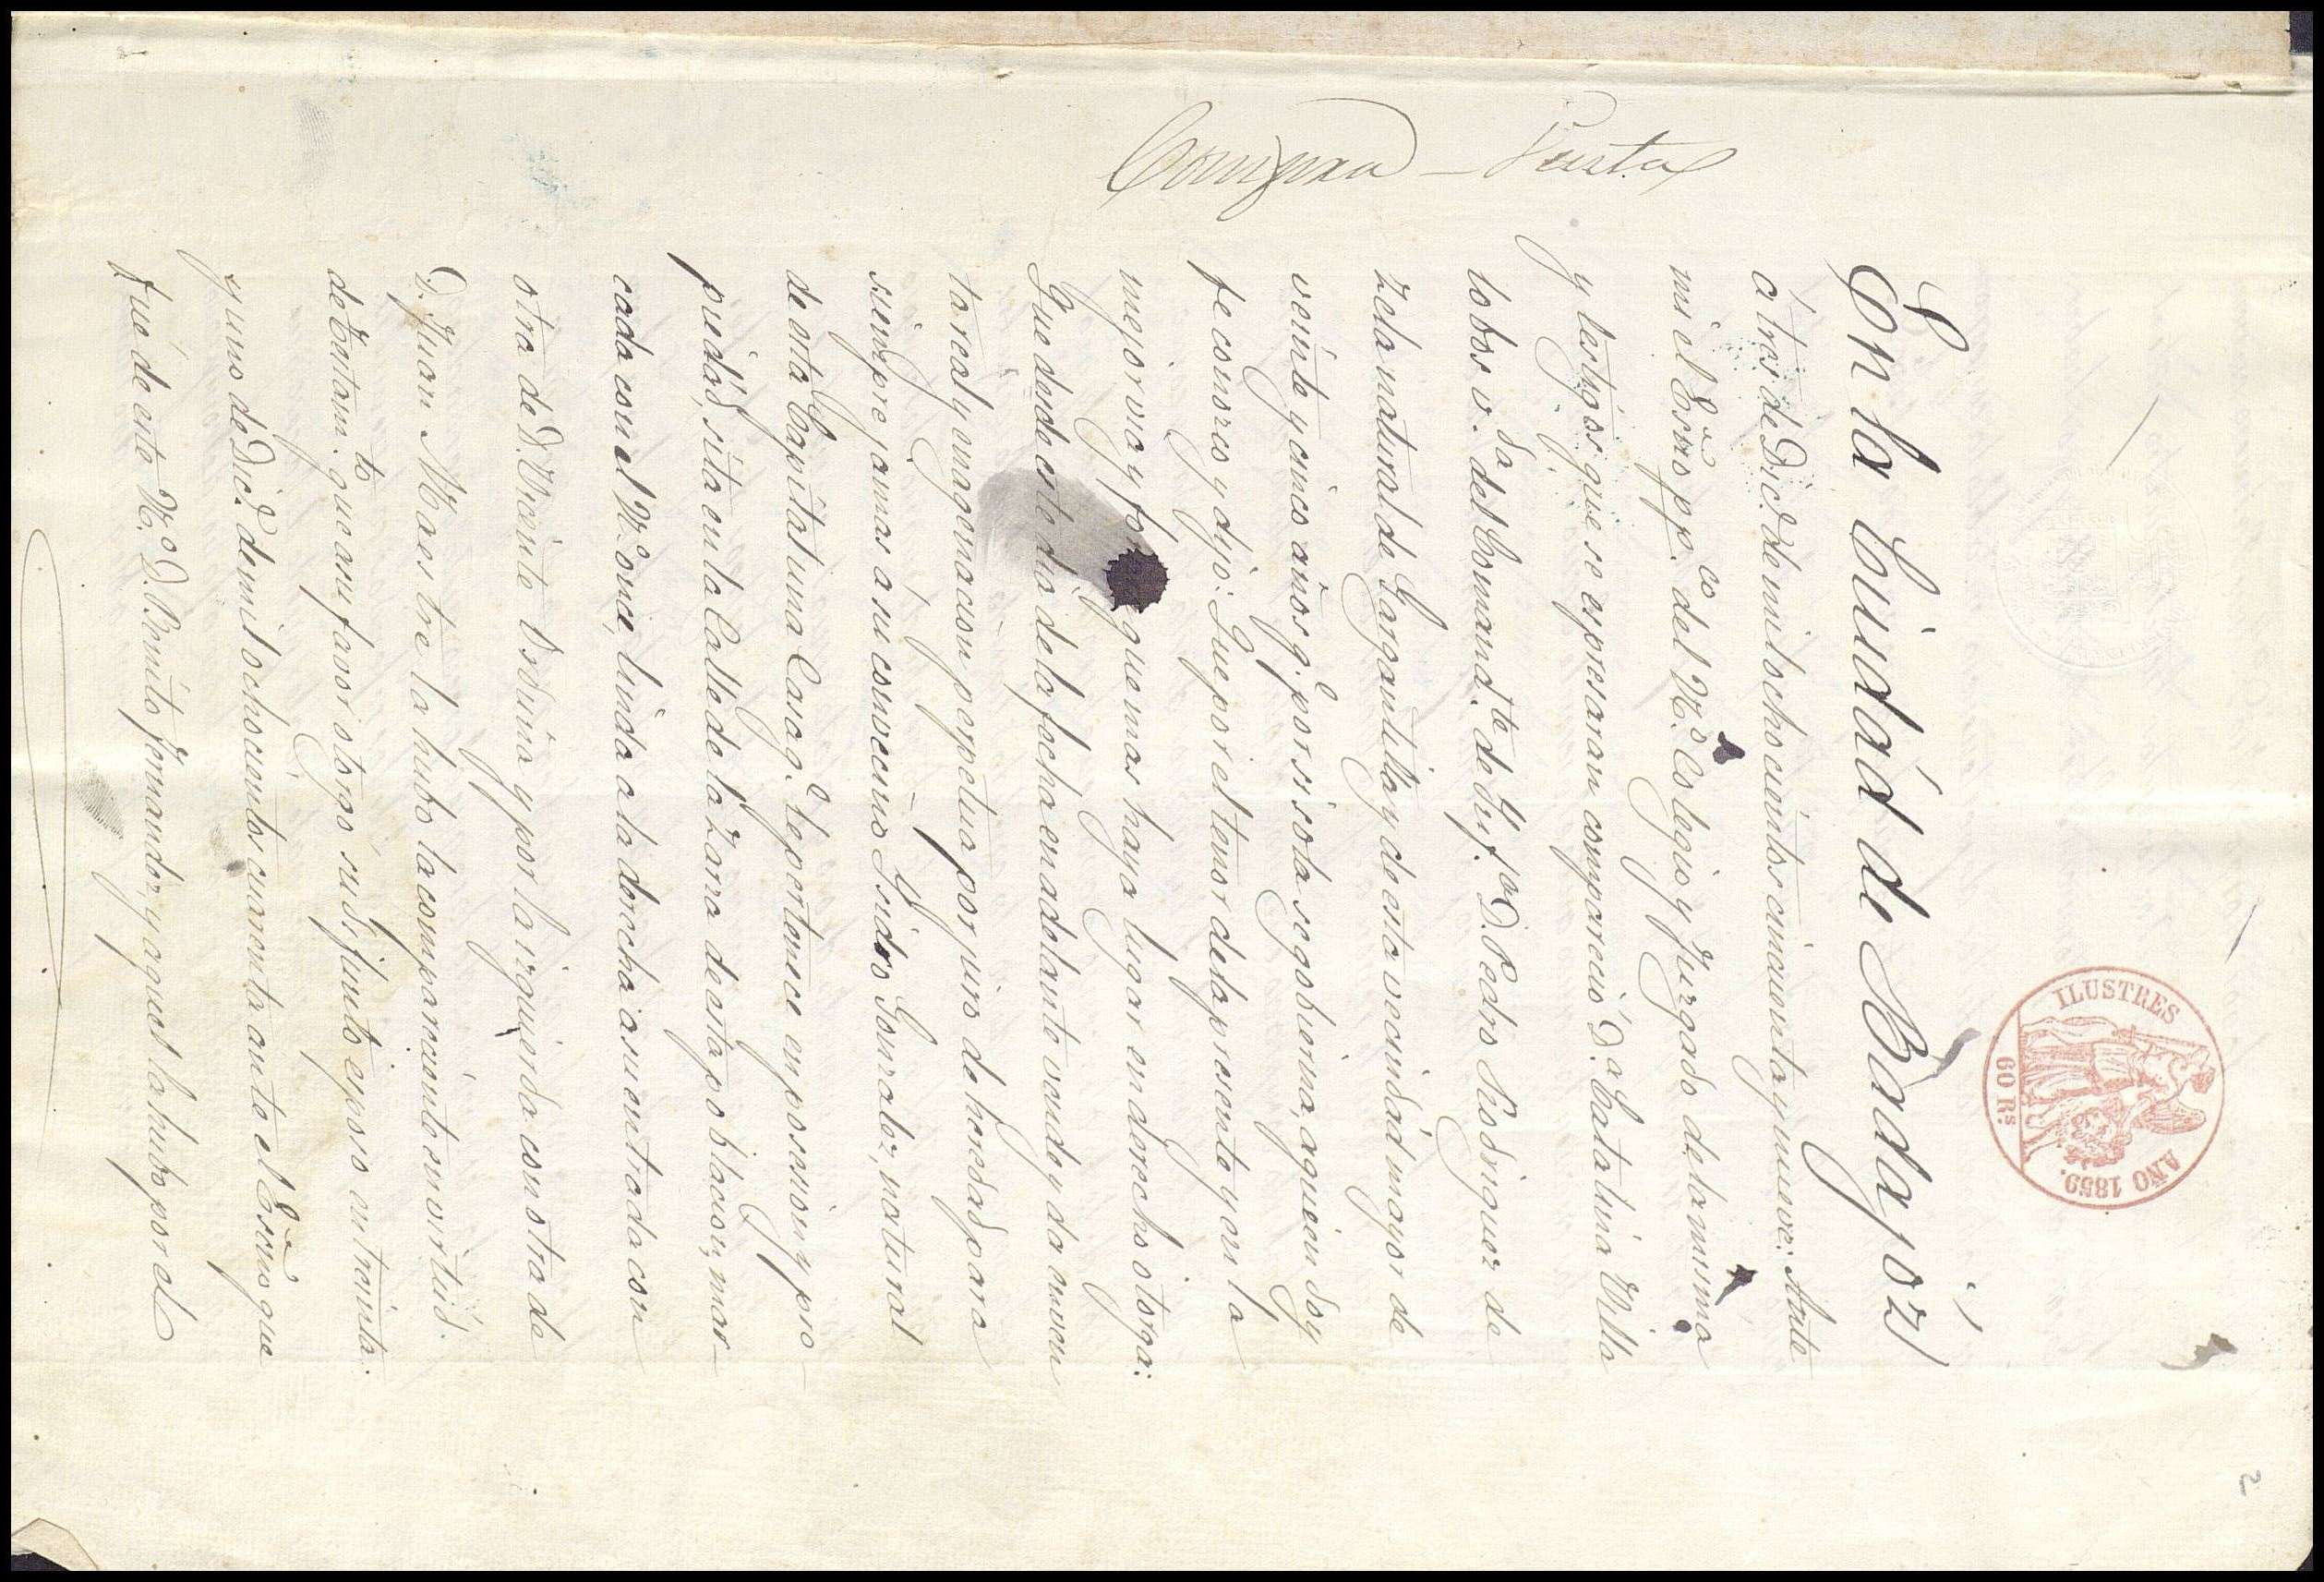 2
ILUSTRES
60 Rs.
AÑO 1859.
Compra - Venta
En la Ciudád de Badajóz
á tres de Dic.e de mil ochocientos cincuenta y nueve: Ante
mi el Esno pp.co del N.o Colegio y Juzgado de la misma
y testigos que se espresaran compareció D.a Catalina Villa
lobos v.da del Comand.te de Inf.a D. Pedro Rodriguez de
Zela natural de Gargantilla y de esta vecindád mayor de
veinte y cinco años q.e por si sola se gobierna, a quien doy
fe conozco y dijo: Que por el tenor de la presente y en la
mejor via y fo que mas haya lugar en derecho otorga:
Que desde este dia de la fecha en adelante vende y da en ven
ta real y enagenacion perpetua por juro de heredad para
siempre jamas á su convecino Isidro Gonzalez, natural
de esta Capital una Casa q.e le pertenece en posesion y pro-
piedád, sita en la Calle de la Zarza de esta poblacion, mar-
cada con el N.o once, linda a la derecha a su entrada con
otra de D. Vicente Orduña y por la izquierda con otra de
D. Juan Maestre la hubo la compareciente en virtud
de testam.to que a su favor otorgó su difunto esposo en treinta
y uno de Dic.e de mil ochocientos cuarenta ante el Esno que
fué de este N.o D. Benito Fernandez, y aquel la hubo por el